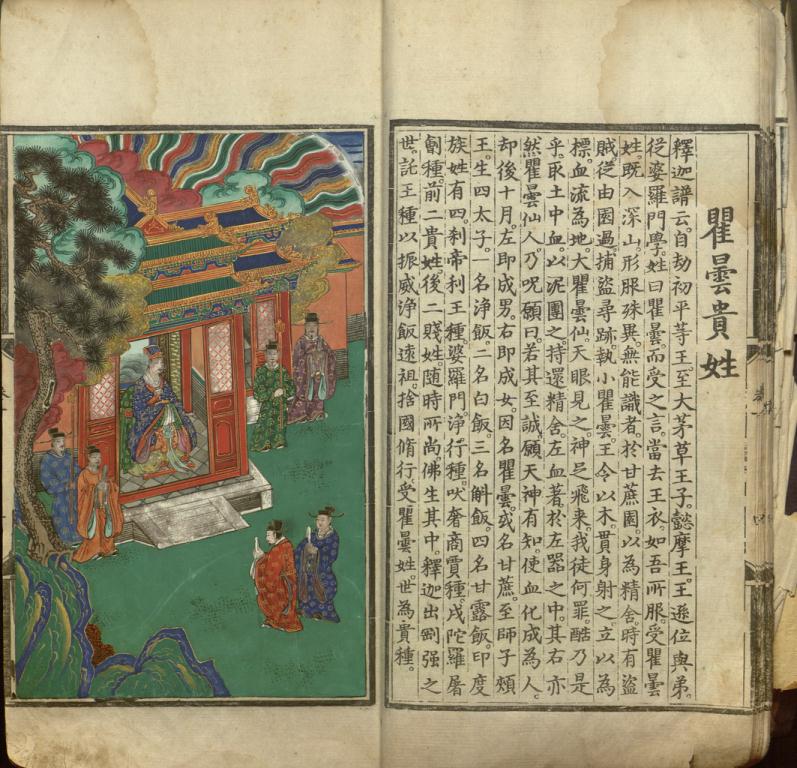 瞿曇貴姓
釋迦譜云。自劫初平等王。至大茅草王子。懿摩王。王遜位與弟。
從婆羅門學。姓曰瞿曇。而受之言。當去王衣。如吾所服。受瞿曇
姓。既入深山。形服殊異。無能識者。於甘蔗園。以為精舍。時有盜
賊。從由園過。捕盜尋跡。執小瞿曇。王令以木貫身射之。立以為
標。血流為地。大瞿曇仙。天眼見之。神足飛来。我徒何罪。酷乃是
乎。取土中血。以泥團之。持還精舍。左血著於左器之中。其右亦
然。瞿曇仙人。乃呪願曰。若其至誠。願天神有知。使血化成為人。
却後十月。左即成男。右即成女。因名瞿曇。或名甘蔗。至師子頰
王。生四太子。名浄飯。二名白飯。三名斛飯。四名甘露飯。印度
族姓有四。刹帝利王種。婆羅門。浄行種。吠奢商賈種。戍陀羅屠
劊種。前二貴姓。後二賤姓。隨時所尚。佛生其中。釋迦出剛强之
世。託王種以振威。浄飯遠祖。捨國脩行。受瞿曇姓。世為貴種。